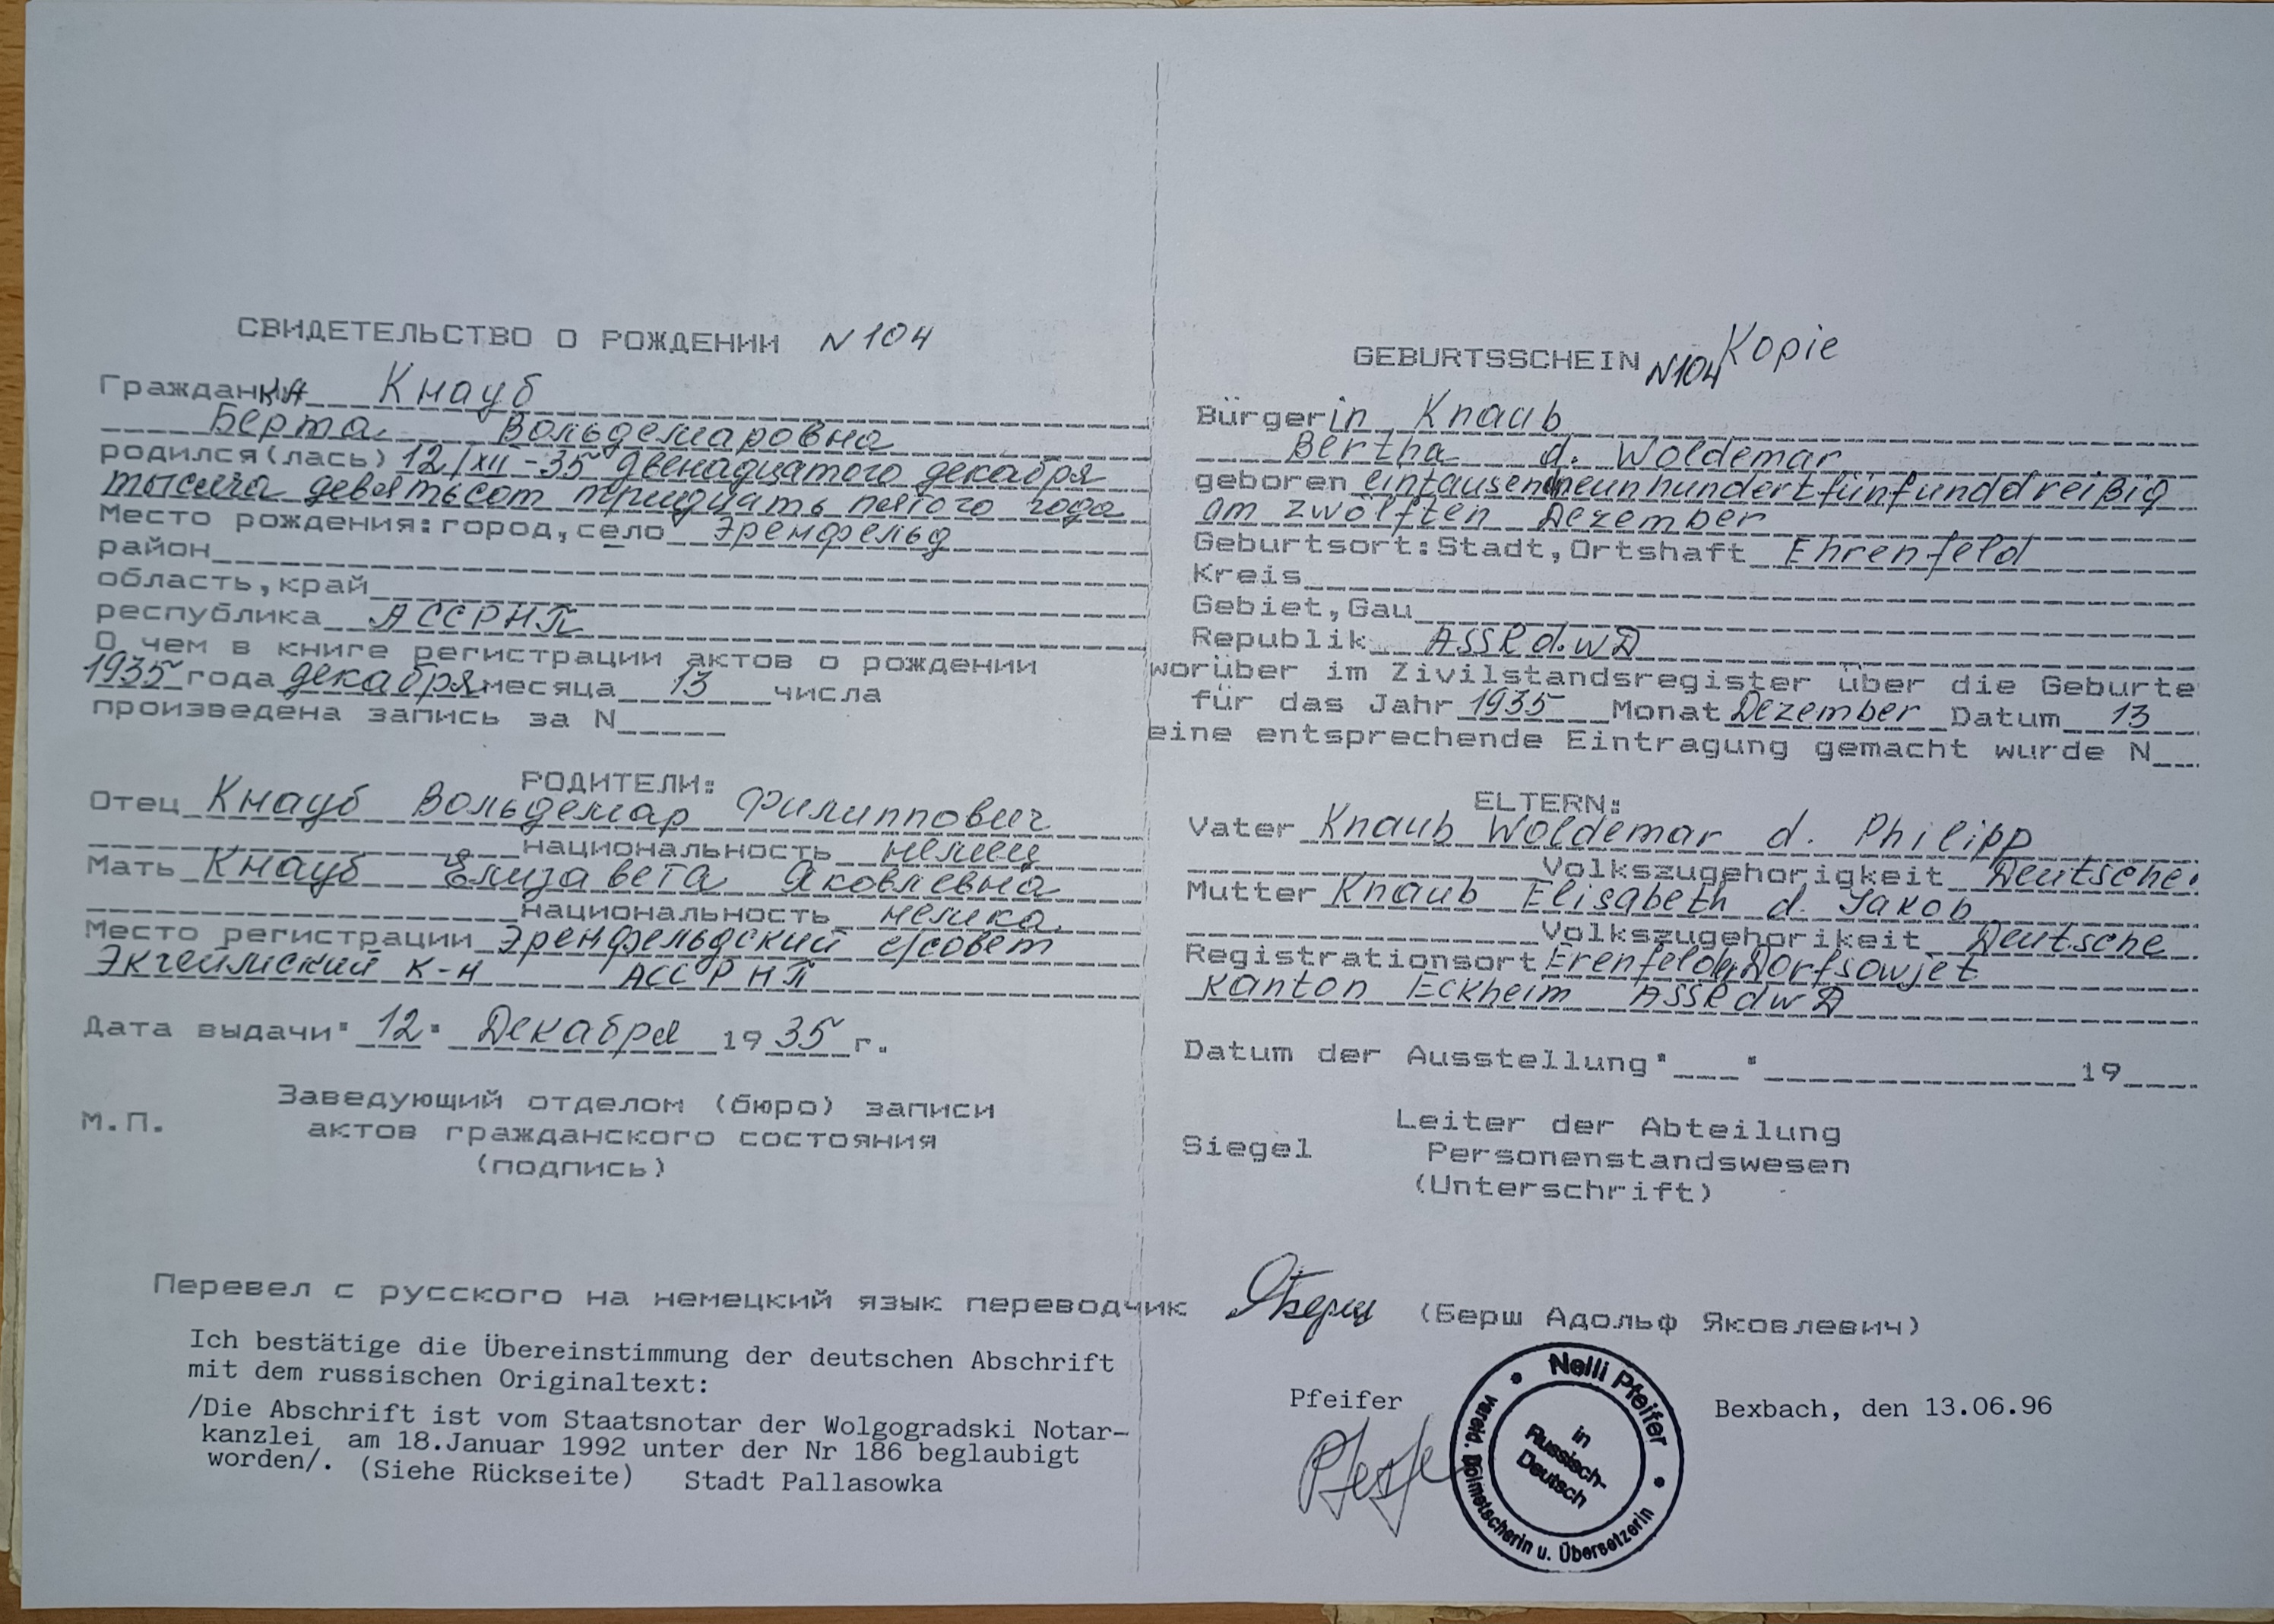 СВИДЕТЕЛЬСТВО О РОЖДЕНИИ N 104
Гражданка Кнауб
Берта Вольдемаровна
родился(лась) 12/XII-35 двенадцатого декабря
тысяча девятьсот тридцать пятого года
Место рождения: город, село Эренфельд
район
область, край
республика АССРНП
О чем в книге регистрации актов о рождении
1935 года декабря месяца 13 числа
произведена запись за N
РОДИТЕЛИ:
Отец Кнауб Вольдемар Филиппович
национальность немец
Мать Кнауб Елизавета Яковлевна
национальность немка.
Место регистрации Эренфельдский с/совет
Экгеймский к-н АССРНП
Дата выдачи "12" Декабря 1935 г.
Заведующий отделом (бюро) записи
М.П. актов гражданского состояния
(подпись)
GEBURTSSCHEIN N104 Kopie
Bürgerin Knaub
Bertha d. Woldemar
geboren eintausendneunhundertfünfunddreißig
am zwölften Dezember
Geburtsort: Stadt, Ortshaft Ehrenfeld
Kreis
Gebiet, Gau
Republik ASSR d.WD
worüber im Zivilstandsregister über die Geburte
für das Jahr 1935 Monat Dezember Datum 13
eine entsprechende Eintragung gemacht wurde N
ELTERN:
Vater Knaub Woldemar d. Philipp
Volkszugehorigkeit Deutscher
Mutter Knaub Elisabeth d. Jakob
Volkszugehorikeit Deutsche
Registrationsort Erenfeld Dorfsowjet
Kanton Eckheim ASSR d W D
Datum der Ausstellung " " 19
Leiter der Abteilung
Siegel Personenstandswesen
(Unterschrift)
Перевел с русского на немецкий язык переводчик АБерш (Берш Адольф Яковлевич)
Ich bestätige die Übereinstimmung der deutschen Abschrift
mit dem russischen Originaltext:
/Die Abschrift ist vom Staatsnotar der Wolgogradski Notar-
kanzlei am 18.Januar 1992 unter der Nr 186 beglaubigt
worden/. (Siehe Rückseite) Stadt Pallasowka
Pfeifer
Bexbach, den 13.06.96
Nelli Pfeifer
vereid. Dolmetscherin u. Übersetzerin
in
Russisch-
Deutsch